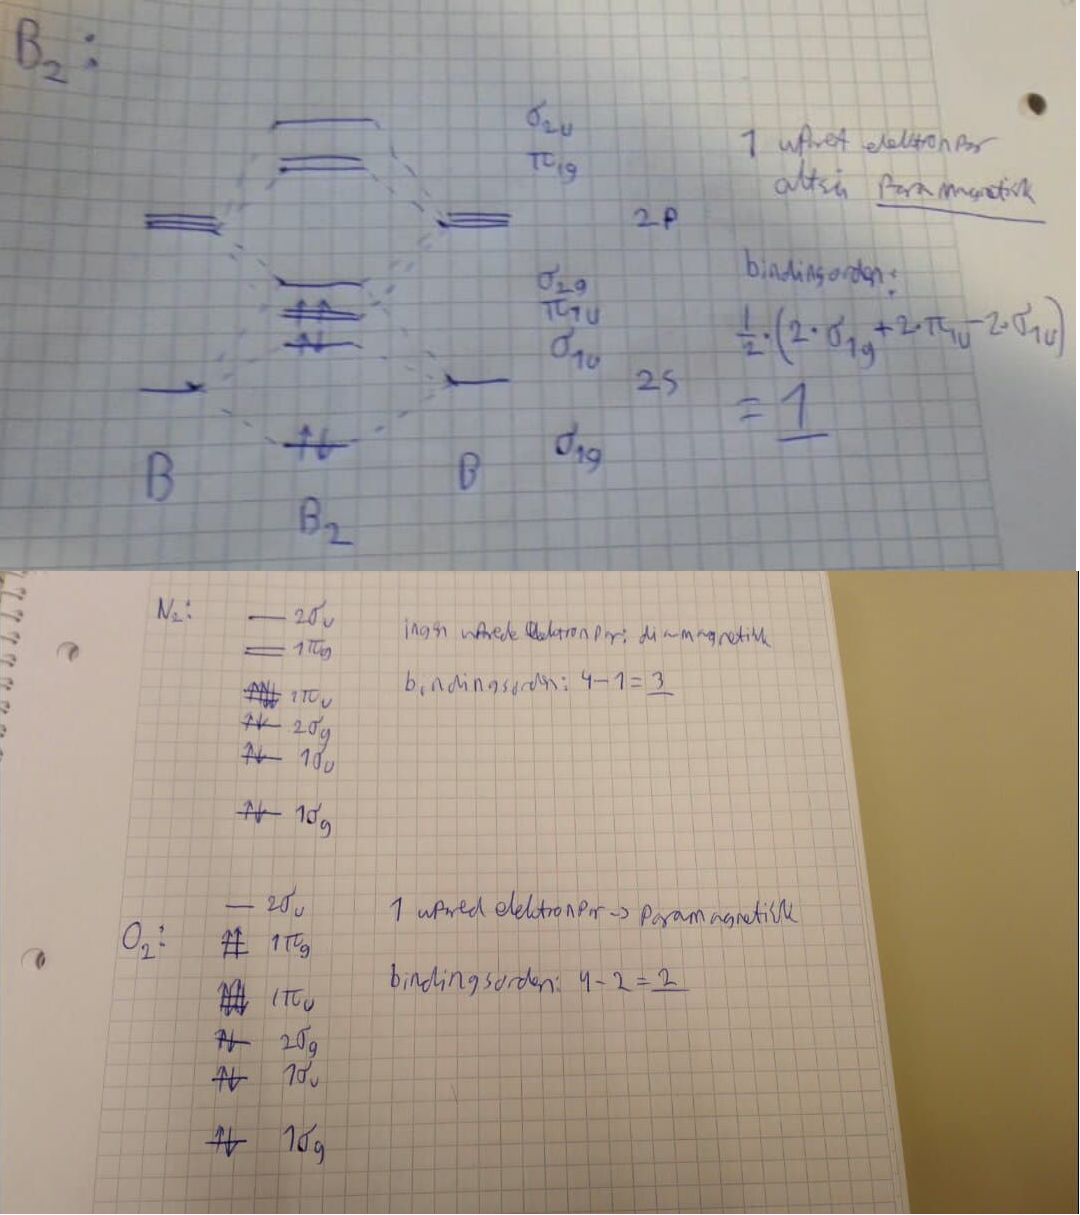 B₂:
σ₂ᵤ
π₁g
2p
σ₂g
π₁ᵤ
σ₁ᵤ
2s
σ₁g
B B
B₂
1 upret elektronpar
altså Paramagnetisk
bindingsorden:
½·(2·σ₁g+2·π₁ᵤ-2·σ₁ᵤ)
= 1
N₂:
2σᵤ
1πg
1πᵤ
2σg
1σᵤ
1σg
ingen uprede elektronpar: diamagnetisk
bindingsorden: 4-1=3
O₂:
2σᵤ
1πg
1πᵤ
2σg
1σᵤ
1σg
1 upred elektronpar -> Paramagnetisk
bindingsorden: 4-2=2